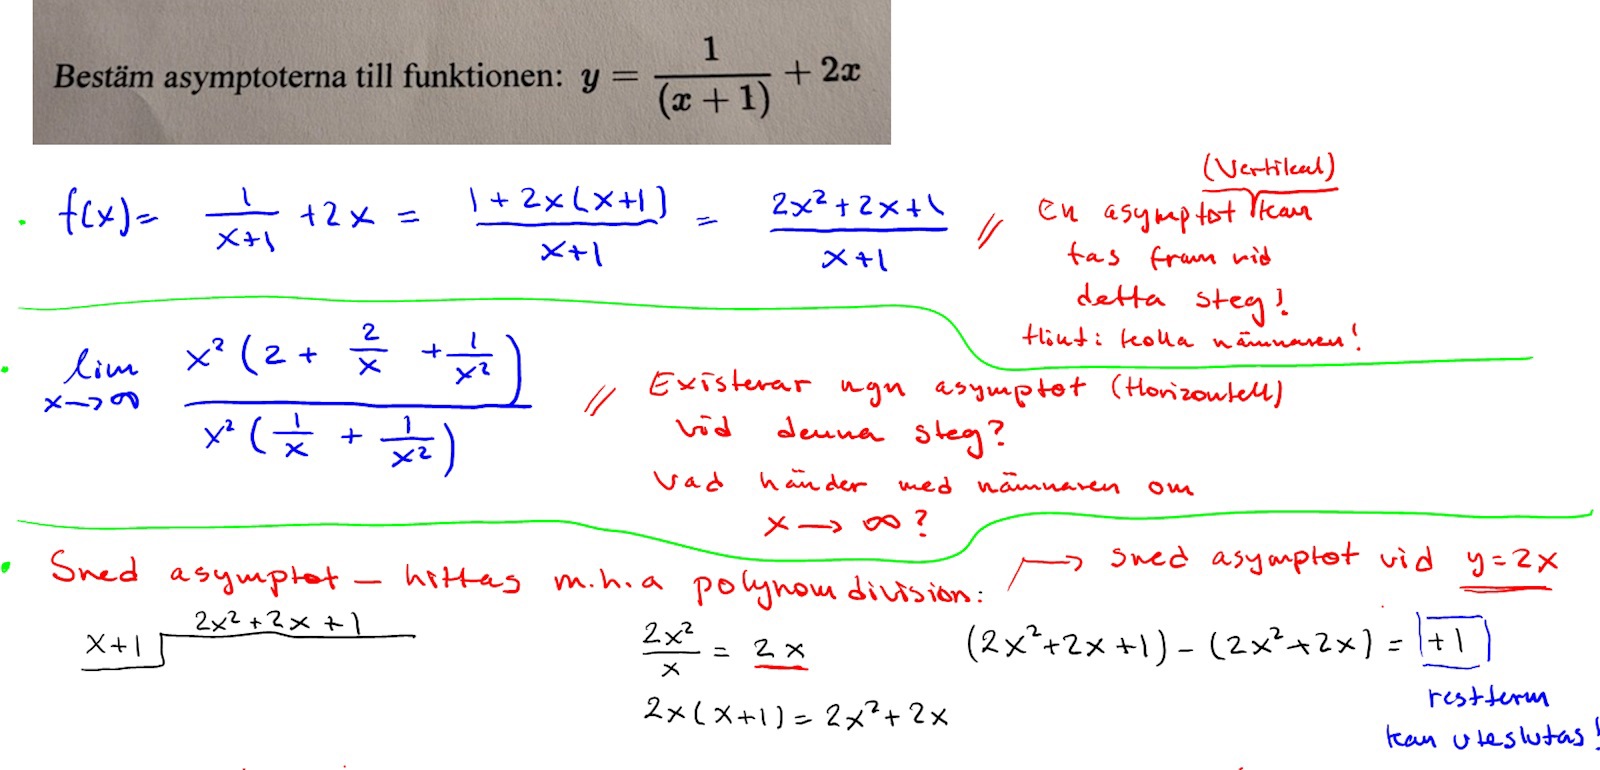 Bestäm asymptoterna till funktionen: y = 1/(x + 1) + 2x
f(x)= 1/(x+1) +2x = (1+2x(x+1))/(x+1) = (2x²+2x+1)/(x+1) //
(Vertikal)
en asymptot kan
tas fram vid
detta steg!
Hint: kolla nämnaren!
lim x→∞ x²(2 + 2/x + 1/x²) / x²(1/x + 1/x²) //
Existerar ngn asymptot (Horizontell)
vid denna steg?
Vad händer med nämnaren om
x → ∞ ?
Sned asymptot – hittas m.h.a polynomdivision:
→ sned asymptot vid y=2x
x+1 2x²+2x+1
2x²/x = 2x
2x(x+1)=2x²+2x
(2x²+2x+1)-(2x²+2x)= +1
restterm
kan uteslutas!